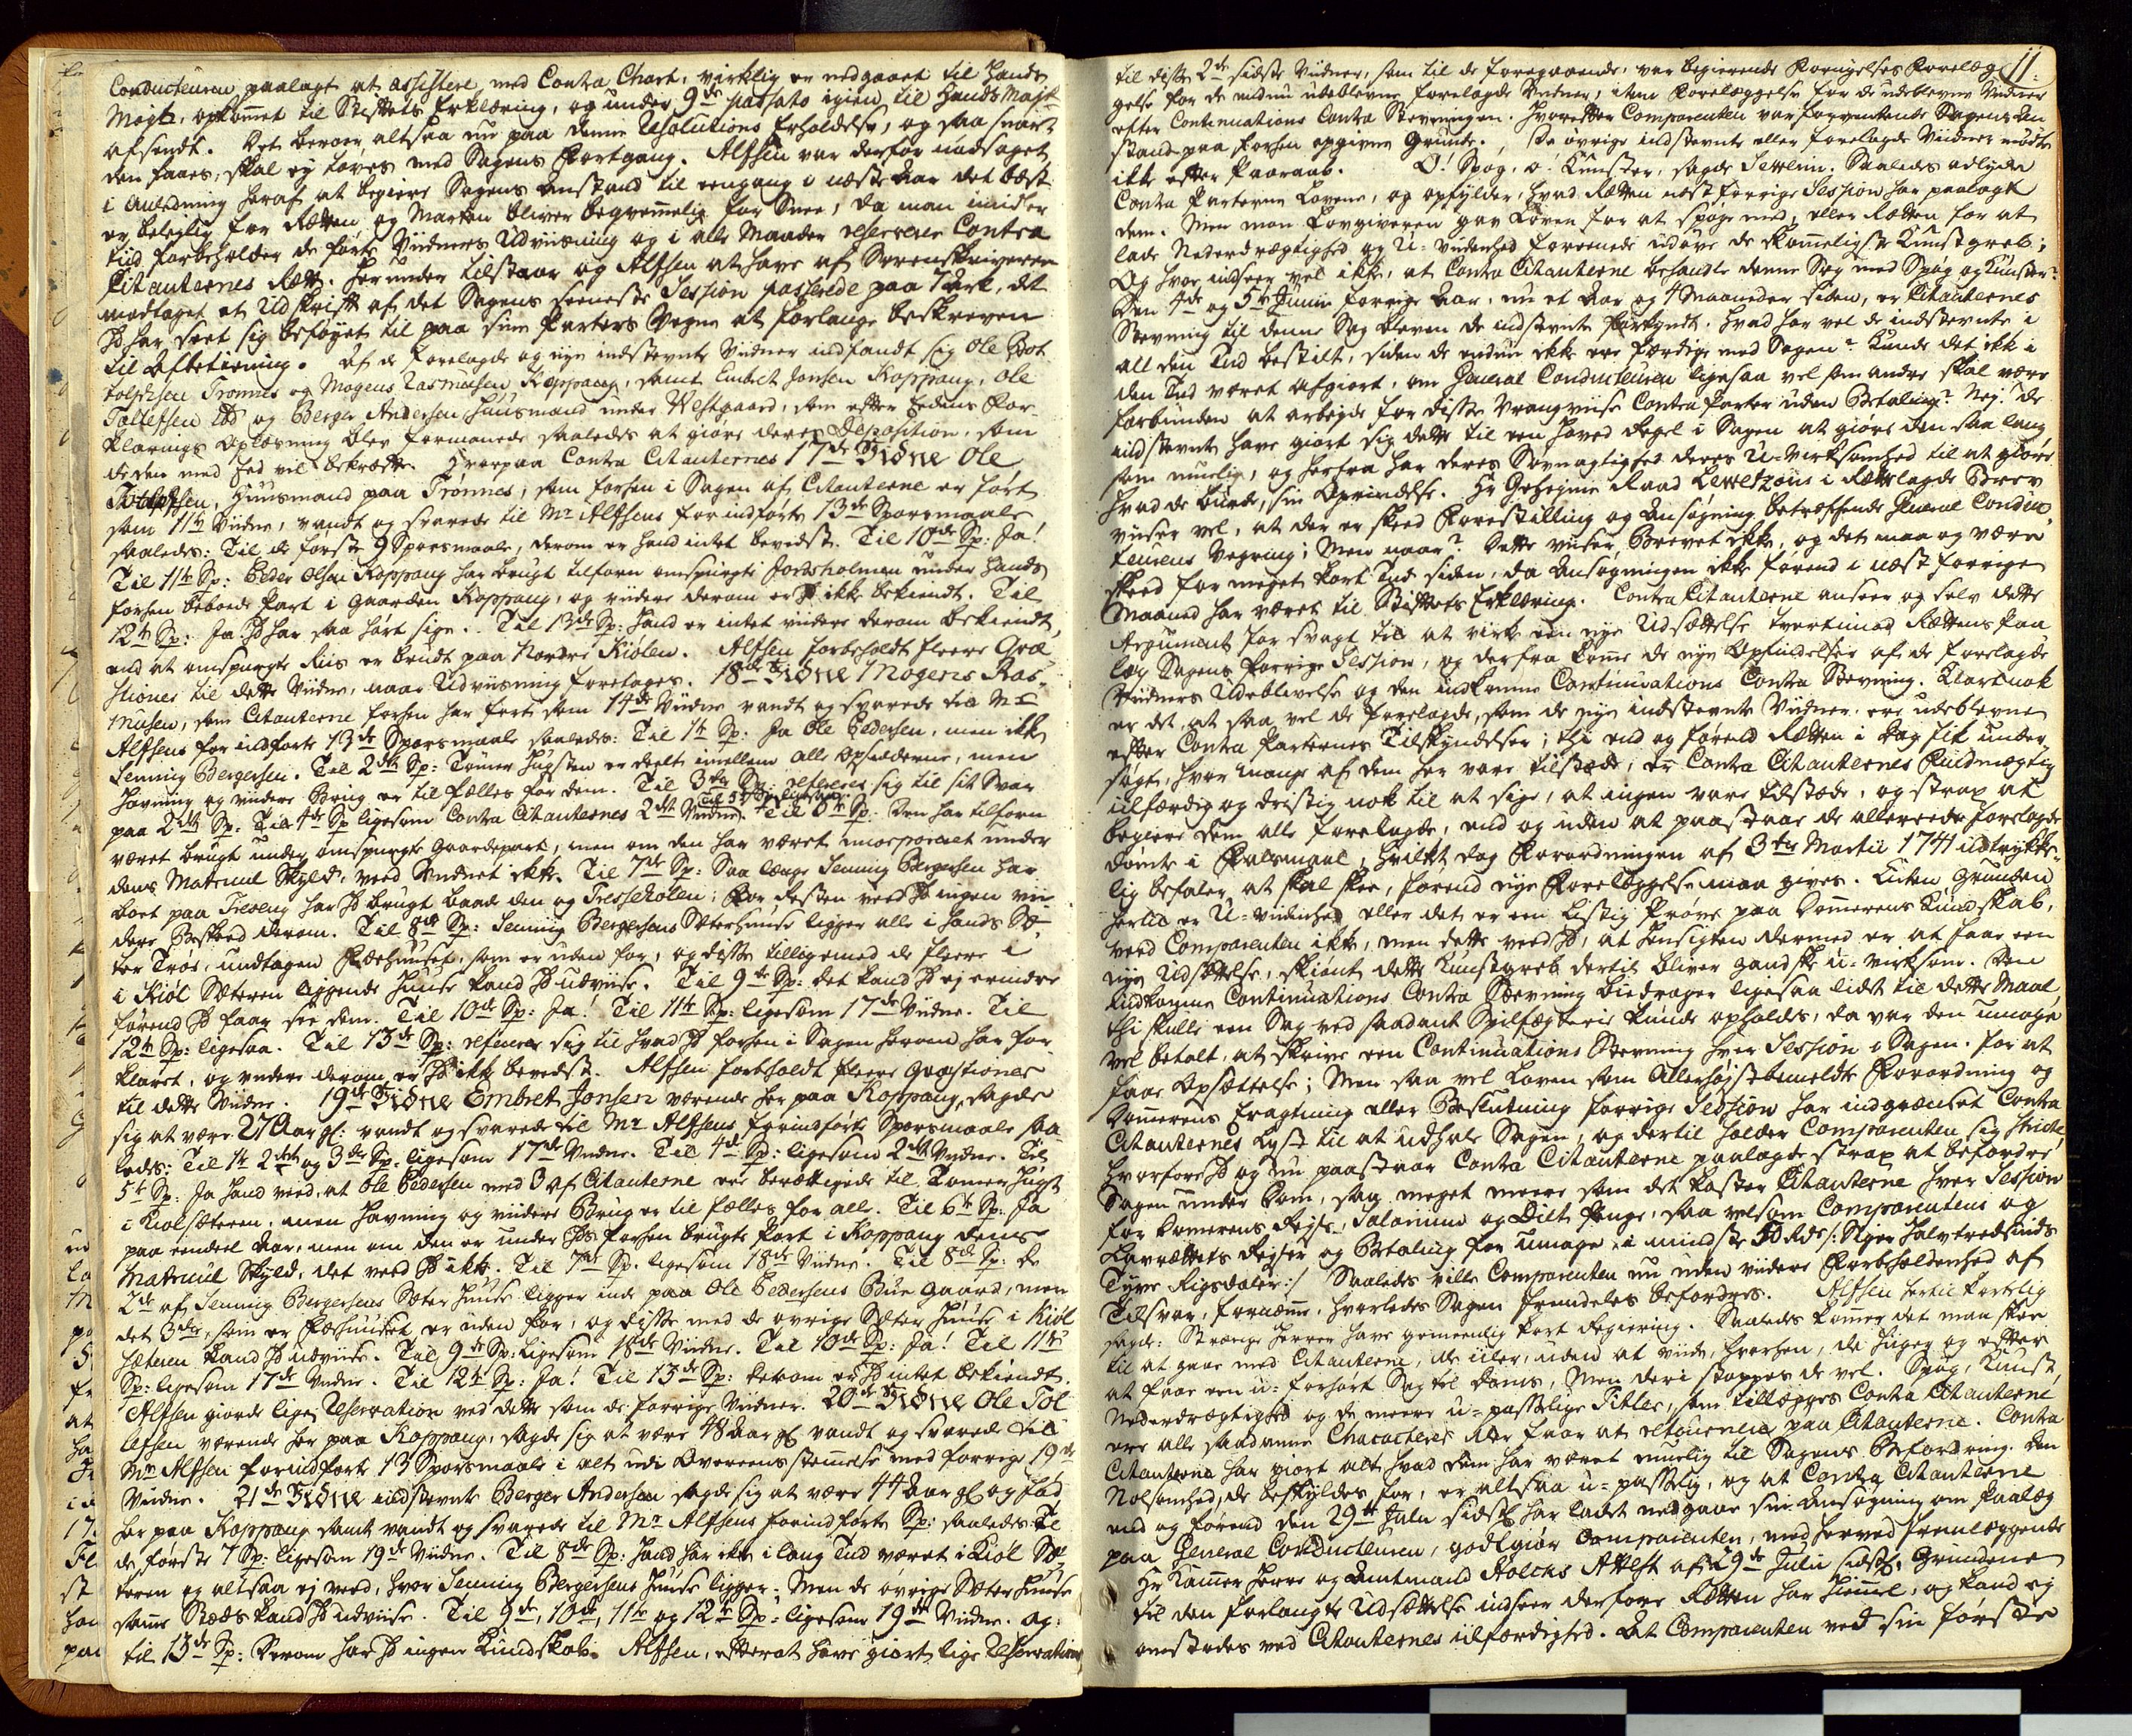 Conducteuren paalagt at assistere med Contra Chart, virklig er nedgaaet til Hands
Mayts, opkommet til Stiftets Erklæring, og under 9de passato igien til Hands Mayts
afsendt. Det beroer altsaa nu paa denne Resolutions Erholdelse, og saa snart
den faaes, skal ey tøves med Sagens Fortgang. Alfsen var derfor nødsaget
i Anledning heraf at begiere Sagens Anstand til eengang i næste Aar det bæst
er belejlig for Rætten, og Marken bliver beqvemmelig for Snee, da man imidler
tiid forbeholder de førte Viidners Udviisning og i alle Maader reserverer Contra
Citanternes Rætt. Herunder tilstaar og Alfsen at have af Sorenskriveren
modtaget et Udskrift af det Sagens seeneste Session passerede paa 7 Ark, det
Hd har seet sig beføyet til paa sine Parters Vegne at forlange beskreven
til Afbetiening. Af de forelagde og nye indstevnte Viidner indfandt sig Ole Bot
tolfsen Trønnes og Mogens Rasmusen Koppang, samt Embret Jonsen Koppang, Ole
Tollefsen ibd og Berger Andersen Huusmand under Westgaard, som efter Eedens For-
klarings Oplæsning blev formanede saaledes at giøre deres Deposition, som
de den med Eed vil bekræfte. Hvorpaa Contra Citanternes 17de Vidne Ole
Botolfsen, Huusmand paa Trønnes, som forhen i Sagen af Citanterne er ført
som 11te Viidne, vandt og svarede til Mr Alfsens forindførte 13de Spørsmaale
saaledes: Til de første 9 Spørsmaale, derom er hand intet bevidst. Til 10de Sp: Ja!
Til 11te Sp: Peder Olsen Koppang har brugt tilforn omspurgte Jordsholmen under Hands
forhen beboede Part i Gaarden Koppang, og videre derom er Hd ikke bekiendt. Til
12te Sp: Ja Hd har saa hørt sige. Til 13de Sp: Hand er intet viidere derom bekiendt,
end at omspurgte Riis er brudt paa Nordre Kiølen. Alfsen forbeholdt fleere Qvæ
stioner til dette Viidne, naar Udviisning foretages. 18de Vidne Mogens Ras-
musen, som Citanterne forhen har ført som 14de Viidne vandt og svarede til Mr
Alfsens forindførte 13de Spørsmaale saaledes: Til 1te Sp: Ja Ole Pedersen, men ikke
Henning Bergersen. Til 2det Sp: Tømmer Hugsten er deelt imellem alle Opsidderne, men
Havning og viidere Brug er til fælles for dem. Til 3de Sp: refererer sig til sit Svar
paa 2det Sp: Til 4de Sp ligesom Contra Citanternes 2det Viidne. Til 5te Sp: ligesaa. Til 6te Sp: Den har tilforn
været brugt under omspurgte Gaardepart, men om den har været incorporeret under
dens Matricul Skyld, veed Viidnet ikke. Til 7de Sp: Saa længe Henning Bergersen har
boet paa Treeng har Hd brugt baade den og Tresseholen; For Resten veed Hd ingen vii-
dere Beskeed derom. Til 8de Sp: Henning Bergersens Sæterhuuse ligger alle i Hands Sæ-
ter Trøe, undtagen Fæehuuset, som er uden for, og disse tilligemed de fleere i
i Kiøl Sæteren liggende Huuse kand Hd udviise. Til 9de Sp: det kand Hd ej erindre
førend Hd faar see dem. Til 10de Sp: Ja! Til 11te Sp: ligesom 17de Viidne. Til
12te Sp: ligesaa. Til 13de Sp: refererer sig til hvad Hd forhen i Sagen herom har for-
klaret, og viidere derom er Hd ikke bevidst. Alfsen forbeholdt fleere Qvæstioner
til dette Viidne. 19de Vidne Embret Jonsen værende her paa Koppang, sagde
sig at være 27 Aar gl: vandt og svarede til Mr Alfsens forindførte Spørsmaale saa
ledes: Til 1te 2det og 3de Sp. ligesom 17de Viidne. Til 4de Sp: ligesom 2det Viidne. Til
5te Sp: Ja hand veed, at Ole Pedersen med 3 af Citanterne ere berættigede til Tømmer Hugst
i Kiølsæteren, men Havning og viidere Brug er til fælles for alle. Til 6te Sp: Ja
paa eendeel Aar, men om den er under Hds forhen brugte Part i Koppang dens
Matricul Skyld, det veed Hd ikke. Til 7de Sp. ligesom 18de Viidne. Til 8de Sp: de
2de af Henning Bergersens Sæter Huuse ligger inde paa Ole Pedersens Bue Gaard, men
det 3die, som er Fæehuuset, er uden for, og disse med de øvrige Sæter Huuse i Kiøl
sæteren kand Hd udviise. Til 9de Sp: ligesom 18de Viidne. Til 10de Sp: Ja! Til 11te
Sp: ligesom 17de Viidne. Til 12te Sp: Ja! Til 13de Sp: derom er Hd intet bekiendt.
Alfsen giorde lige Reservation ved dette som de forrige Viidner. 20de Vidne Ole Tol
lefsen værende her paa Koppang, sagde sig at være 48 Aar gl vandt og svarede til
Mr Alfsens forindførte 13 Spørsmaale i alt udi Overeensstemmelse med forrige 19de
Viidne. 21de Vidne indstevnte Berger Andersen sagde sig at være 44 Aar gl og fød
her paa Koppang samt vandt og svarede til Mr Alfsens forindførte Sp: saaledes: Til
de første 7 Sp: ligesom 19de Viidne. Til 8de Sp: Hand har ikke i lang Tiid været i Kiøl Sæ-
teren og altsaa ej veed, hvor Henning Bergersens Huuse ligger: Men de øvrige Sæter Huuse
samme Stæds kand Hd udviise. Til 9de, 10de, 11te og 12te Sp: ligesom 19de Viidne. og:
til 13de Sp: Derom har Hd ingen Kundskab. Alfsen, efterat have giort lige Reservation
11:
til disse 2de sidste Viidner, som til de foregaaende, var begierende Fornyelses Forelæg
gelse for de endnu udeblevne forelagde Viidner, item Forelæggelse for de udeblevne Viidner
efter Continuations Contra Stevningen. Hvorefter Comparenten var forventende Sagens An
stand paa forhen opgivne Grunde. De øvrige indstevnte eller forelagde Viidner mødte
ikke efter Paaraab. O! Spøg, o! Kunster, sagde Settem. Saaledes adlyder
Contra Parterne Lovene, og opfylder, hvad Rætten næstforrige Session har paalagt
dem. Men mon Lovgiveren gav Loven for at spøge med, eller Rætten for at
lade Nederdrægtighed og U-viidenhed foreenede udøve de skammeligste Kunstgreb;
Og hvor indseer vel ikke, at Contra Citanterne behandle denne Sag med Spøg og Kunster?
Den 4de og 5te Junii forrige Aar, nu et Aar og 4 Maaneder siden, er Citanternes
Stevning til denne Sag bleven de indstevnte forkyndt. Hvad har vel de indstevnte i
all den Tiid bestilt, siden de endnu ikke ere færdige med Sagen? Kunde det ikke i
den Tiid været afgiort, om General Conducteuren ligesaa vel som andre skal være
forbunden at arbeyde for disse Vrangviise Contra Parter uden Betaling? Nej! De
indstevnte have giort sig dette til een Hoved Regel i Sagen at giøre den saa lang
som muelig, og herfra har deres Søvnagtighed deres U-virksomhed til at giøre
hvad de burde, sin Oprindelse. Hr Geheyme Raad Levetzous i Rættelagde Brev
viiser vel, at der er skeed Forestilling og Ansøgning betræffende General Conduc-
teurens Vegring; Men naar? Dette viiser Brevet ikke, og det maae og være
skeed for meget kort Tiid siden, da Ansøgningen ikke førend i næst forrige
Maaned har været til Stiftets Erklæring. Contra Citanterne anseer og selv dette
Argument for svagt til at virke een nye Udsættelse tvertimod Rættens Paa
læg Sagens forrige Session, og derfra komme de nye Opfindelser af de forelagde
Viidners Udeblivelse og den indkomne Continuations Contra Stevning. Klart nok
er det, at saa vel de forelagde, som de nye indstevnte Viidner, ere udeblevne
efter Contra Parternes Tilskyndelser; thi end og førend Rætten i Dag fik under-
søgt, hvor mange af dem her vare tilstæde, er Contra Citanternes Fuldmægtig
iilfærdig og dristig nok til at sige, at ingen vare tilstæde, og strax at
begiere dem alle forelagde, end og uden at paastaae de allereede forelagde
dømte i Falsmaal, hvilket dog Forordningen af 3die Martii 1741 udtrykke-
lig befaler, at skal skee, førend nye Forelæggelse maae gives. Enten Grunden
hertil er U-viidenhed eller det er een listig Prøve paa Dommerens Kundskab,
veed Comparenten ikke, men dette veed Hd, at Hensigten dermed er at faae een
nye Udsættelse, skiønt dette Kunstgreb dertil bliver gandske u-virksom. Den
indkomne Continuations Contra Stevning biedrager ligesaa lidt til dette Maal
thi skulle een Sag ved saadant Spilfægterie kunde opholdes, da var den umage
vel betalt, at skrive een Continuations Stevning hver Session i Sagen, for at
faae Opsættelse; Men saa vel Loven som Allerhøjstbemeldte Forordning og
Dommerens Eragtning eller Beslutning forrige Session har indgrændset Contra
Citanternes Lyst til at udhale Sagen, og dertil holder Comparenten sig stricte,
hvorfore Hd og nu paastaar Contra Citanterne paalagde strax at befordre
Sagen under Dom, saa meget meere som det koster Citanterne hver Session
for Dommerens Rejse, Salarium og Dilt Penge, saa vel som Comparentens og
Lavrættets Rejser og Betaling for umage, i mindste 50 Rdr /: Siger Halvtredsinds
Tyve Rigsdaler :/ Saaledes ville Comparenten nu uden viidere Forbeholdenhed af
Tilsvar, fornemme, hvorledes Sagen fremdeeles befordres. Alfsen hertil kortelig
sagde: Strænge Herrer have gemeenlig kort Regiering. Saaledes kommer det man skee
til at gaae med Citanterne, de iiler, uden at viide, hvorhen, de higer og efter
at faae een u-forhørt Sag til Doms, Men deri stoppes de vel. Spøg, Kunst,
Nederdrægtighed og de meere u-passelige Titler, som tillægges Contra Citanterne
ere alle saadanne Characterer der faar at retournere paa Citanterne. Contra
Citanterne har giort alt hvad dem har været muelig til Sagens Befordring. Den
Nølsomhed, de beskyldes for, er altsaa u-passelig, og at Contra Citanterne
end og førend den 29de Julii sidstl har ladet nedgaae sin Ansøgning om Paalæg
paa General Conducteuren, godtgiør Comparenten, med herved fremlæggende
Hr Kammer Herre og Amtmand Holcks Attest af 29de Julii sidstl. Grundene
til den forlangte Udsættelse indseer derfore Rætten har Hiemmel, og kand ej
omstødes ved Citanternes iilfærdighed. At Comparenten ved sin første